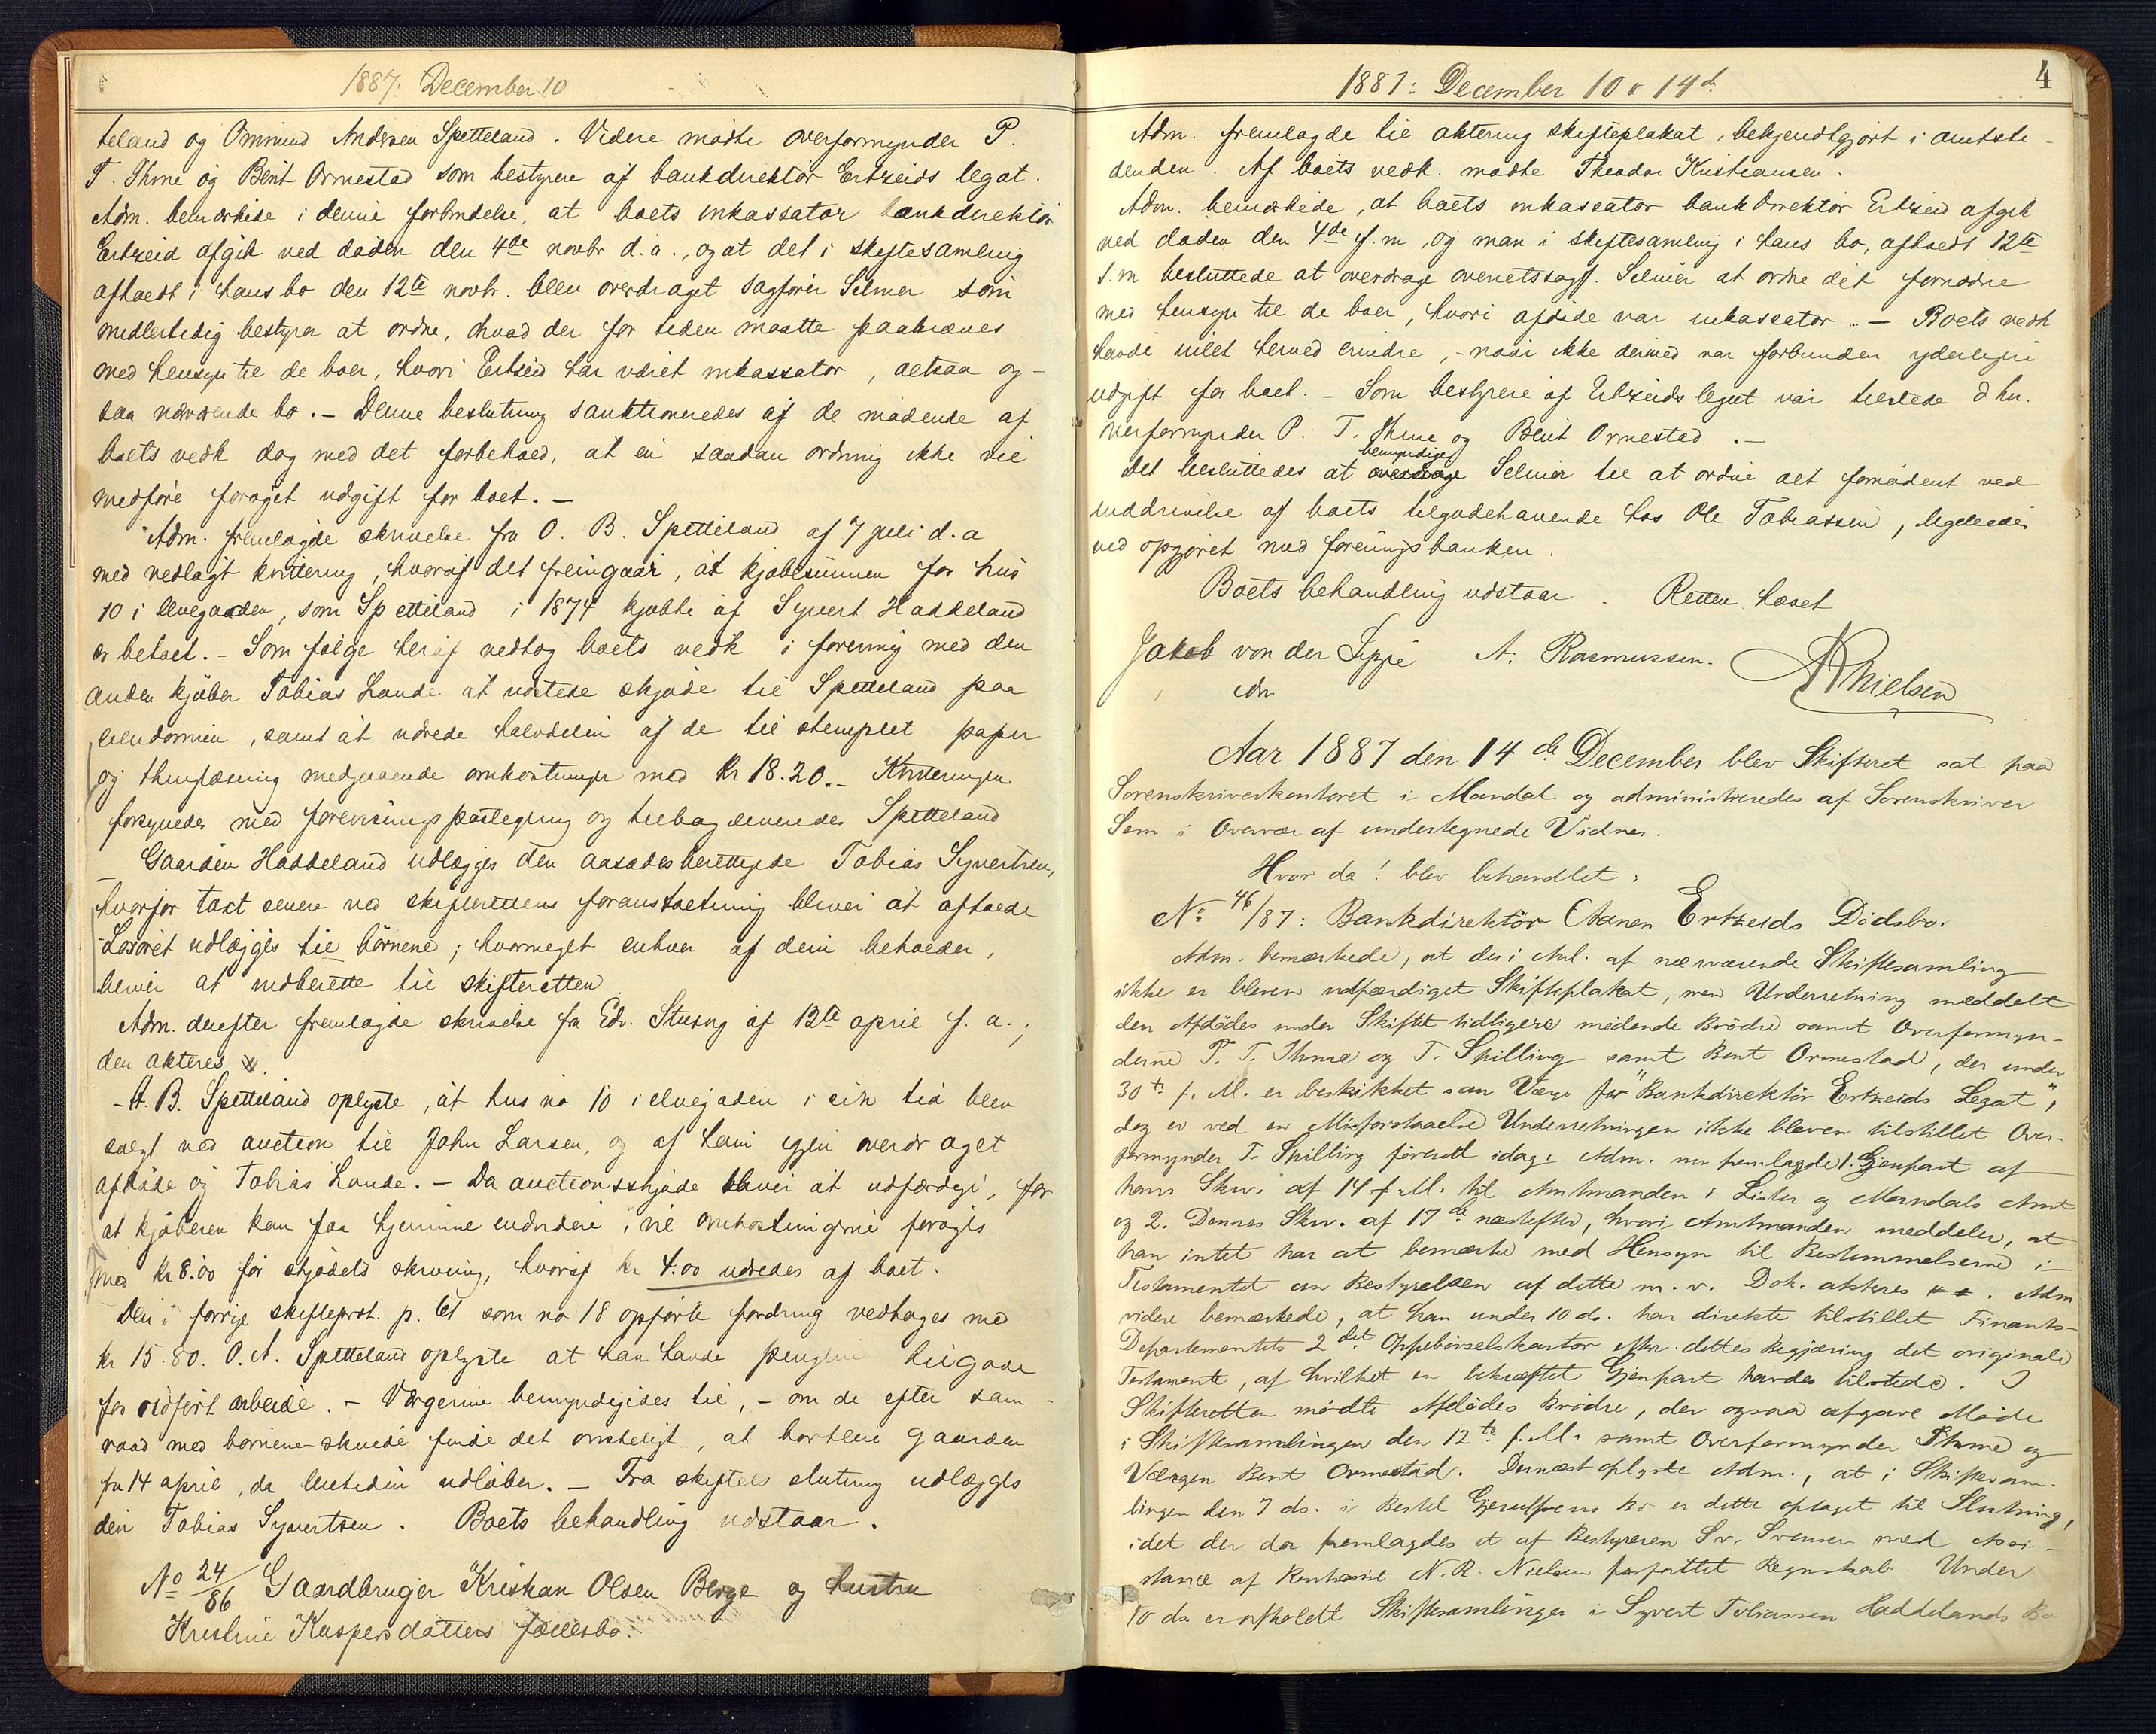 1887: December 10
teland og Ommund Andersen Spetteland. Videre mødte overformynder P.
T. Ihme og Bent Ormestad som bestyrere af bankdirektør Ertzeids legat.
Adm. bemærkede i denne forbindelse, at boets inkassator bankdirektør
Ertzeid afgik ved døden den 4de novbr d.a., og at det i skiftesamling
afholdt i hans bo den 12te novbr. blev overdraget sagfører Selmer som
midlertidig bestyrer at ordne, hvad der for tiden maatte paakræves
med hensyn til de boer, hvori Ertzeid har været inkassator, altsaa og-
saa nærværende bo. - Denne beslutning sanktioneredes af de mødende af
boets vedk dog med det forbehold, at en saadan ordning ikke vil
medføre forøget udgift for boet. -
Adm. fremlagde skrivelse fra O. B. Spetteland af 7 juli d. a
med vedlagt kvittering, hvoraf det fremgaar, at kjøbesummen for hus
10 i elvegaden, som Spetteland i 1874 kjøbte af Syvert Haddeland
er betalt. - Som følge heraf vedtog boets vedk i forening med den
anden kjøber Tobias Lande at udstede skjøde til Spetteland paa
eiendommen, samt at udrede halvdelen af de til stemplet papir
og thinglæsning medgaaende omkostninger med Kr 18.20. - Kvitteringen
forsynedes med forevisnings paategning og tilbageleveredes Spetteland
Gaarden Haddeland udlægges den aasædesberettigede Tobias Syvertsen,
hvorfor taxt senere ved skifterettens foranstaltning bliver at afholde
Løsøret udlægges til børnene; hvormeget enhver af dem beholder,
bliver at indberette til skifteretten
Adm. derefter fremlagde skrivelse fra Edv. Stusvig af 12te april f. a.,
den akteres
- A. B. Spetteland oplyste, at hus no 10 i elvegaden i sin tid blev
solgt ved auction til John Larsen, og af ham igjen overdraget
afdøde og Tobias Lande. - Da auctionsskjøde bliver at udfærdige, for
at kjøberen kan faa hjemmel endvidere, vil omkostningerne forøges
med kr 8.00 for skjødets skrivning, hvoraf kr 4.00 udredes af boet.
Den i forrige skifteprot. p. 61 som no 18 opførte fordring vedtoges med
kr 15.80. O. A. Spetteland oplyste at han havde pengene tilgode
for udført arbeide. - Værgerne bemyndigedes til, - om de efter sam-
raad med børnene skulde finde det ønskeligt, at bortleie gaarden
fra 14 april, da leietiden udløber. - Fra skiftets slutning udlægges
den Tobias Syvertsen. Boets behandling udstaar.
No 24/86 Gaardbruger Kristian Olsen Berge og hustru
Kristine Kaspersdatters fællesbo.
1887: December 10 & 14d.
4
Adm. fremlagde til aktering skifteplakat, bekjendtgjort i amtsti-
denden. Af boets vedk. mødte Theodor Kristiansen.
Adm. bemærkede, at boets inkassator bankdirektør Ertzeid afgik
ved døden den 4de f. m, og man i skiftesamling i hans bo, afholdt 12te
s. m besluttede at overdrage overretssagf. Selmer at ordne det fornødne
med hensyn til de boer, hvori afdøde var inkassator. - Boets vedk
havde intet herved erindre, - naar ikke dermed var forbunden yderligere
udgift for boet. - Som bestyrere af Ertzeids legat var tilstede d hr.
overformynder P. T. Ihme og Bent Ormestad. -
Det besluttedes at bemyndige Selmer til at ordne det fornødent ved
inddrivelse af boets tilgodehavende hos Ole Tobiassen, ligeledes
ved opgjøret med foreningsbanken.
Boets behandling udstaar. Retten hævet
Jakob von der Lippe A. Rasmussen. Nielsen
Aar 1887 den 14de December blev Skifteret sat paa
Sorenskriverkontoret i Mandal og administreredes af Sorenskriver
Lem i Overvær af undertegnede Vidner.
Hvor da! blev behandlet:
No 46/87: Bankdirektør Aanen Ertzeids Dødsbo.
Adm. bemærkede, at der i Anl. af nærværende Skiftesamling
ikke er bleven udfærdiget Skifteplakat, men Underretning meddelt
den Afdødes under Skiftet tidligere mødende Brødre samt Overformyn-
derne P. T. Ihme og T. Spilling samt Bent Ormestad, der under
30te f. M. er beskikket som Værge for "Bankdirektør Ertzeids Legat",
dog er ved en Misforstaaelse Underretningen ikke bleven tilstillet Over-
formynder T. Spilling førend idag. Adm. nu fremlagde 1. Gjenpart af
hans Skriv. af 14 f. M. til Amtmanden i Lister og Mandals Amt
og 2. Dennes Skr. af 17de næstefter, hvori Amtmanden meddeler, at
han intet har at bemærke med Hensyn til Bestemmelserne i
Testamentet om Bestyrelsen af dette m. v. Dok. akteres. Adm
videre bemærkede, at han under 10 ds. har direkte tilstillet Finants-
Departementets 2det Oppebørselskontor efter dettes Begjæring det originale
Testamente, af hvilket en bekræftet Gjenpart havdes tilstede. I
Skifteretten mødte Afdødes Brødre, der ogsaa afgave Møde
i Skiftesamlingen den 12te f. M. samt Overformynder Ihme og
Værgen Bent Ormestad. Dernæst oplyste Adm., at i Skiftesam-
lingen den 7 ds. i Bertel Gjerulfsens Bo er dette optaget til Slutning,
idet der da fremlagdes et af Bestyreren Sv. Svensen med Assi-
stance af Kontorist N. R. Nielsen forfattet Regnskab. Under
10 ds. er afholdt Skiftesamlinger i Syvert Tobiassen Haddelands Bo